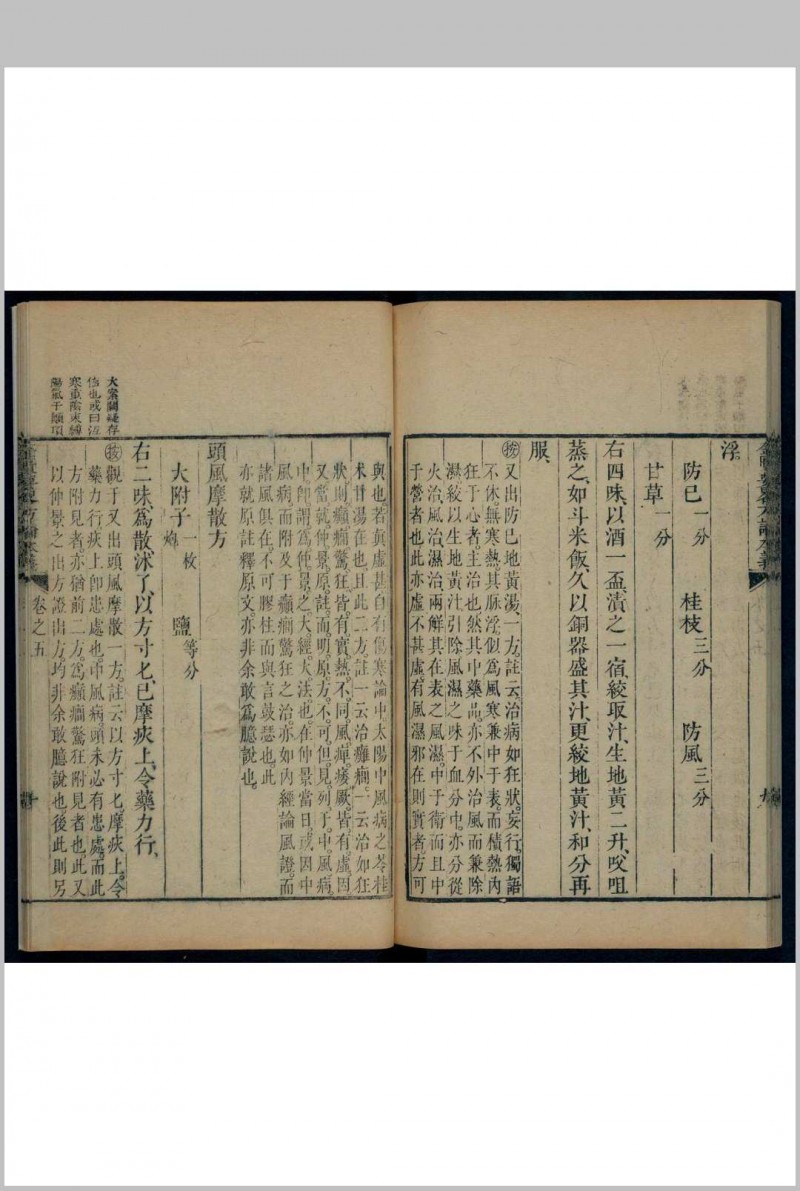 浮
防巳一分　桂枝三分　防風三分
甘草一分
右四味、以酒一盃漬之一宿、絞取汁、生地黃二升、㕮咀
蒸之、如斗米飯、久以銅器盛其汁、更絞地黃汁、和分再
服、
按又出防巳地黃湯一方。註云治病如狂狀。妄行。獨語
不休。無寒熱。其脉浮。似爲風寒兼中于表。而積熱內
狂于心者。主治也。然其中藥品。亦不外治風而兼除
濕。絞以生地黃汁引除風濕之味于血分中。亦分從
火治風。治濕。治兩解其在表之風濕。中于衛而且中
于營者也。此亦虛不甚虛。有風濕邪在則實者方可
與也。若眞虛甚自有傷寒論中太陽中風病之苓桂
术甘湯在也。且此二方。註一云治癱癎。一云治如狂
狀。則癲癎驚狂。皆有實熱。不同風痺痿厥。皆有虛因
又當就仲景原註。而明原方。不可但見列于中風病
中。卽謂爲仲景之大經大法也。在仲景當日。或因中
風病。而附及于癲癎驚狂之治。亦如內經論風證。而
諸風俱在。不可膠柱而與言鼓瑟也。此
亦就原註釋原文。亦非余敢爲臆說也。
頭風摩散方
大附子一枚炮　鹽等分
右二味、爲散、沭了、以方寸匕、已摩疢上、令藥力行、
按觀于又出頭風摩散一方。註云以方寸匕。摩疢上。令
藥力行。疢上卽患處也。中風病。頭未必有患處。而此
方附見者。亦猶前二方。爲癲癎驚狂附見者也。此又
以仲景之出方證出方。均非余敢臆說也。後此則另
大衆關疑存
寒重陰束縛
陽氣于頭項
卷之五
十
九